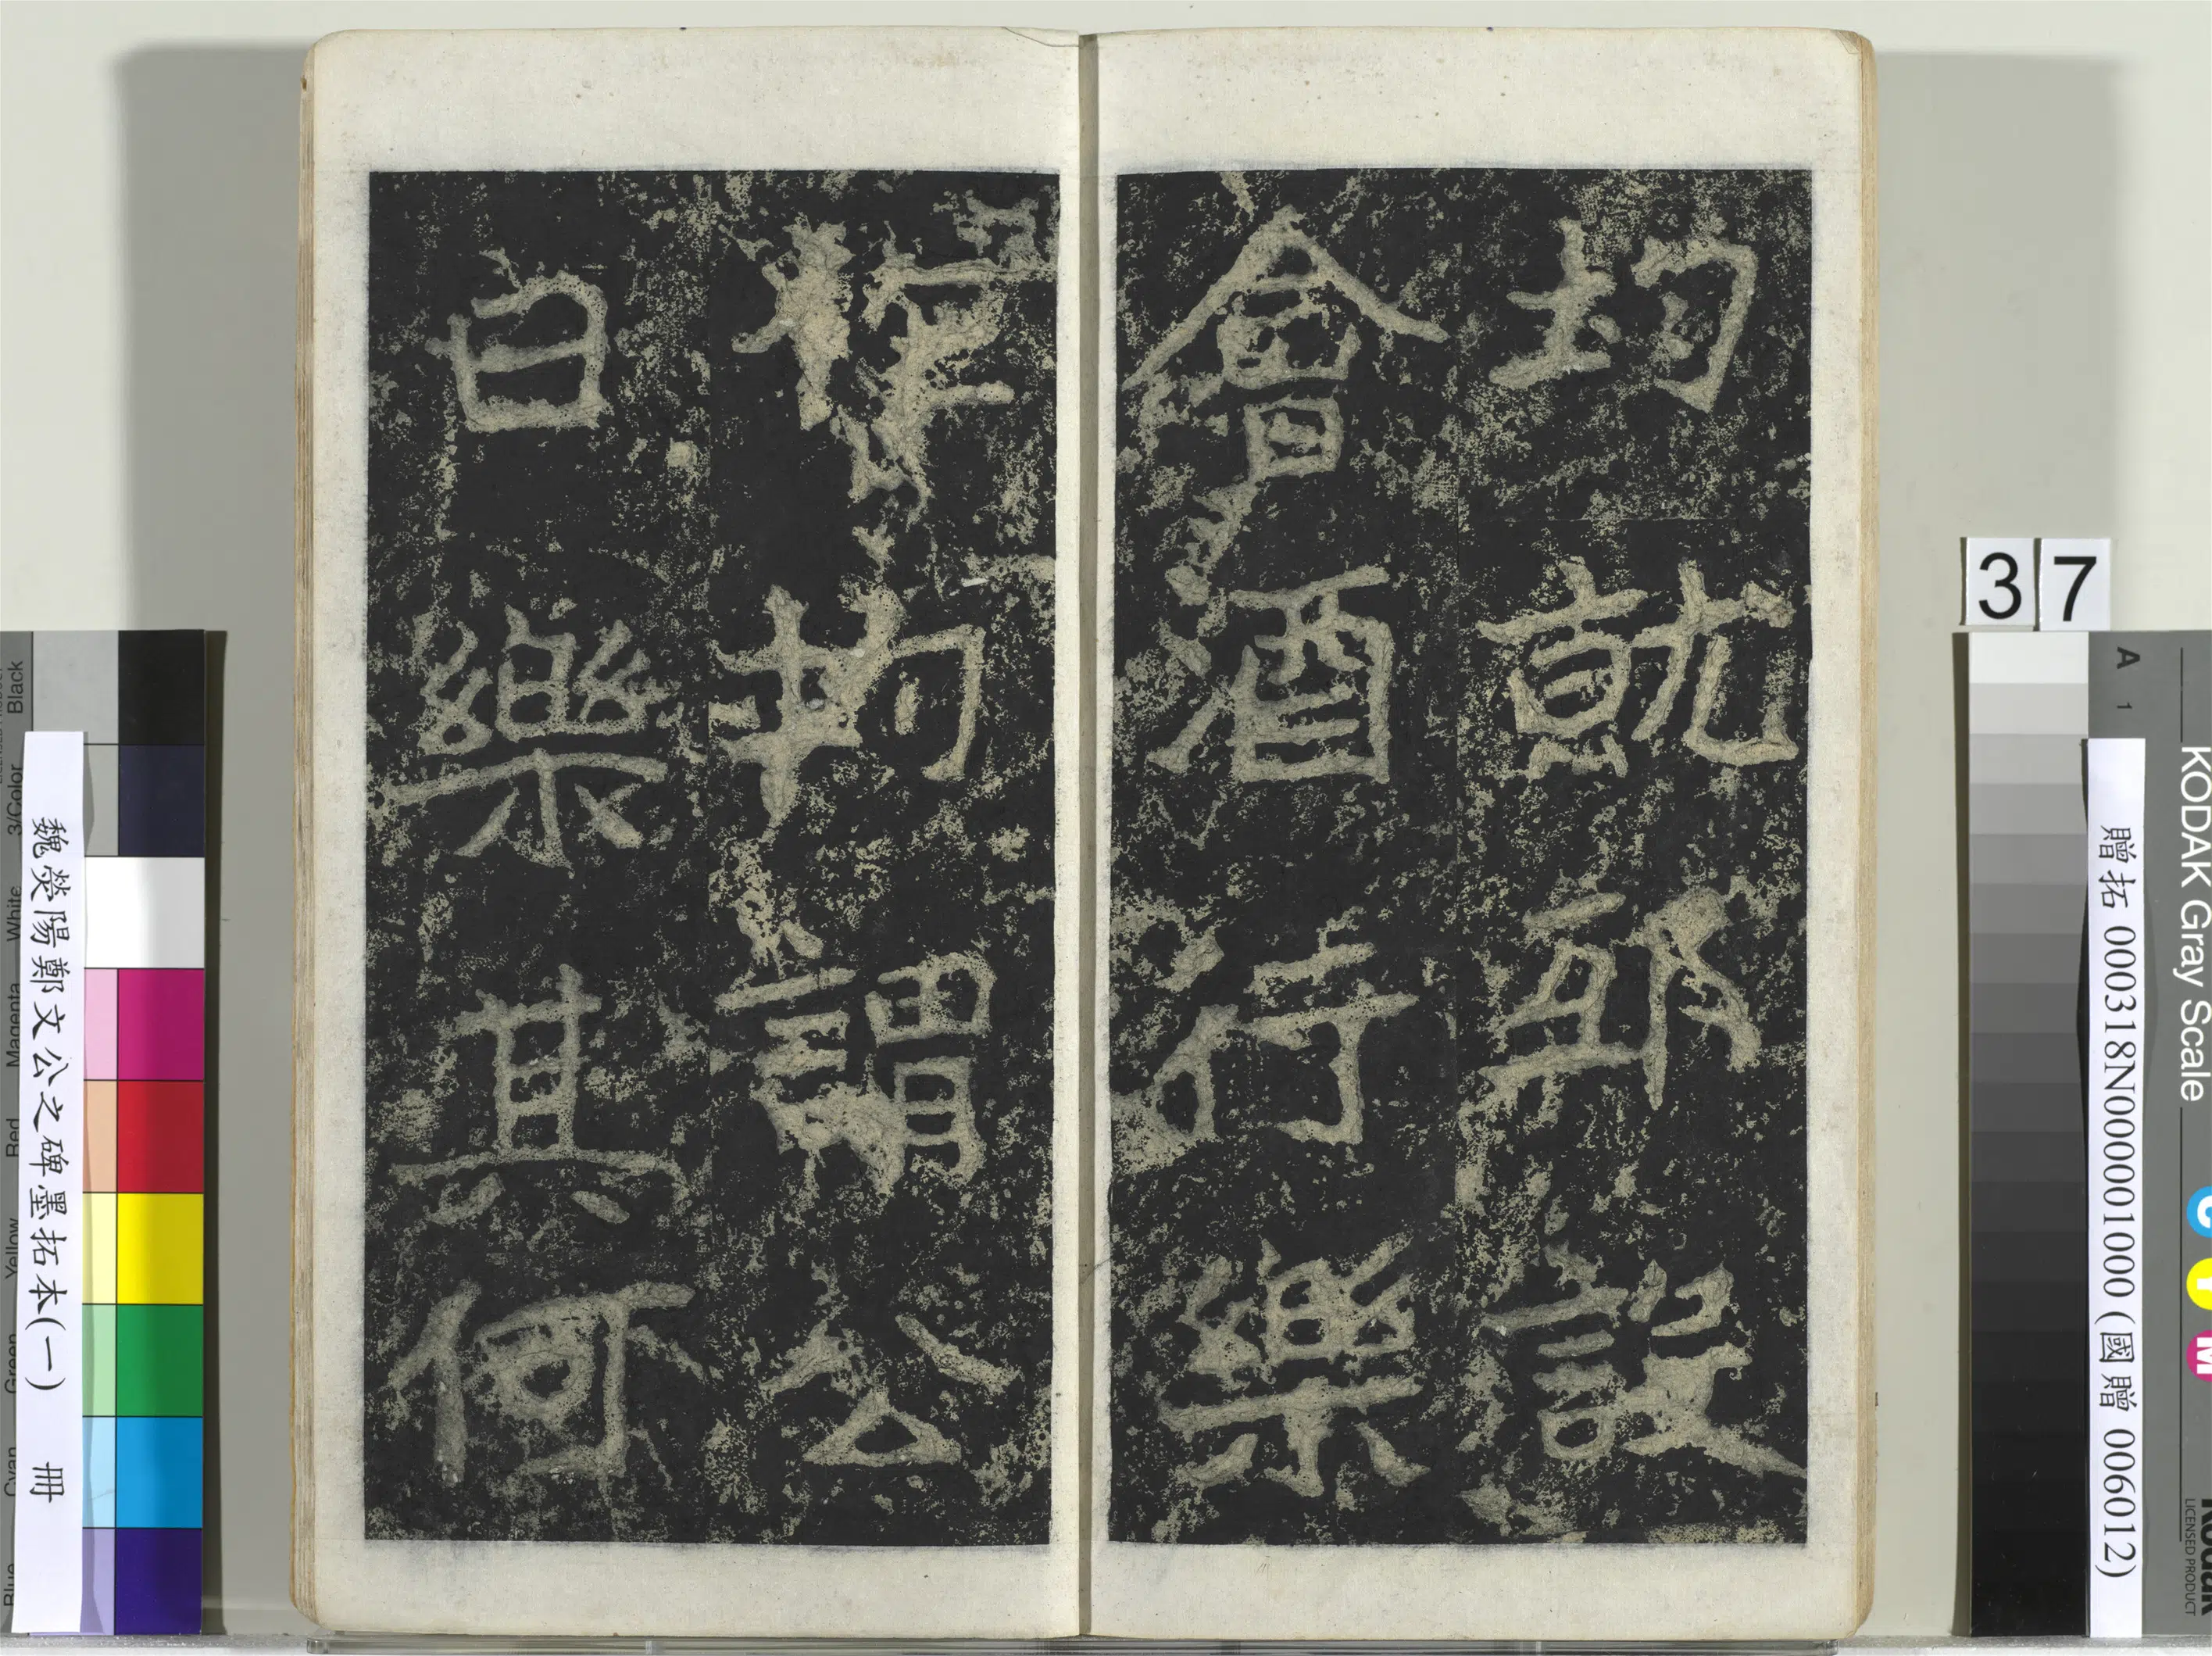 均就邸設
會酒行樂
作均謂公
曰樂其何
37
A 1
KODAK Gray Scale
C Y M
Kodak
LICENSED PRODUCT
贈拓 000318N000001000 (國贈 006012)
魏滎陽鄭文公之碑墨拓本(一) 冊
Blue Cyan Green Yellow Red Magenta White 3/Color Black